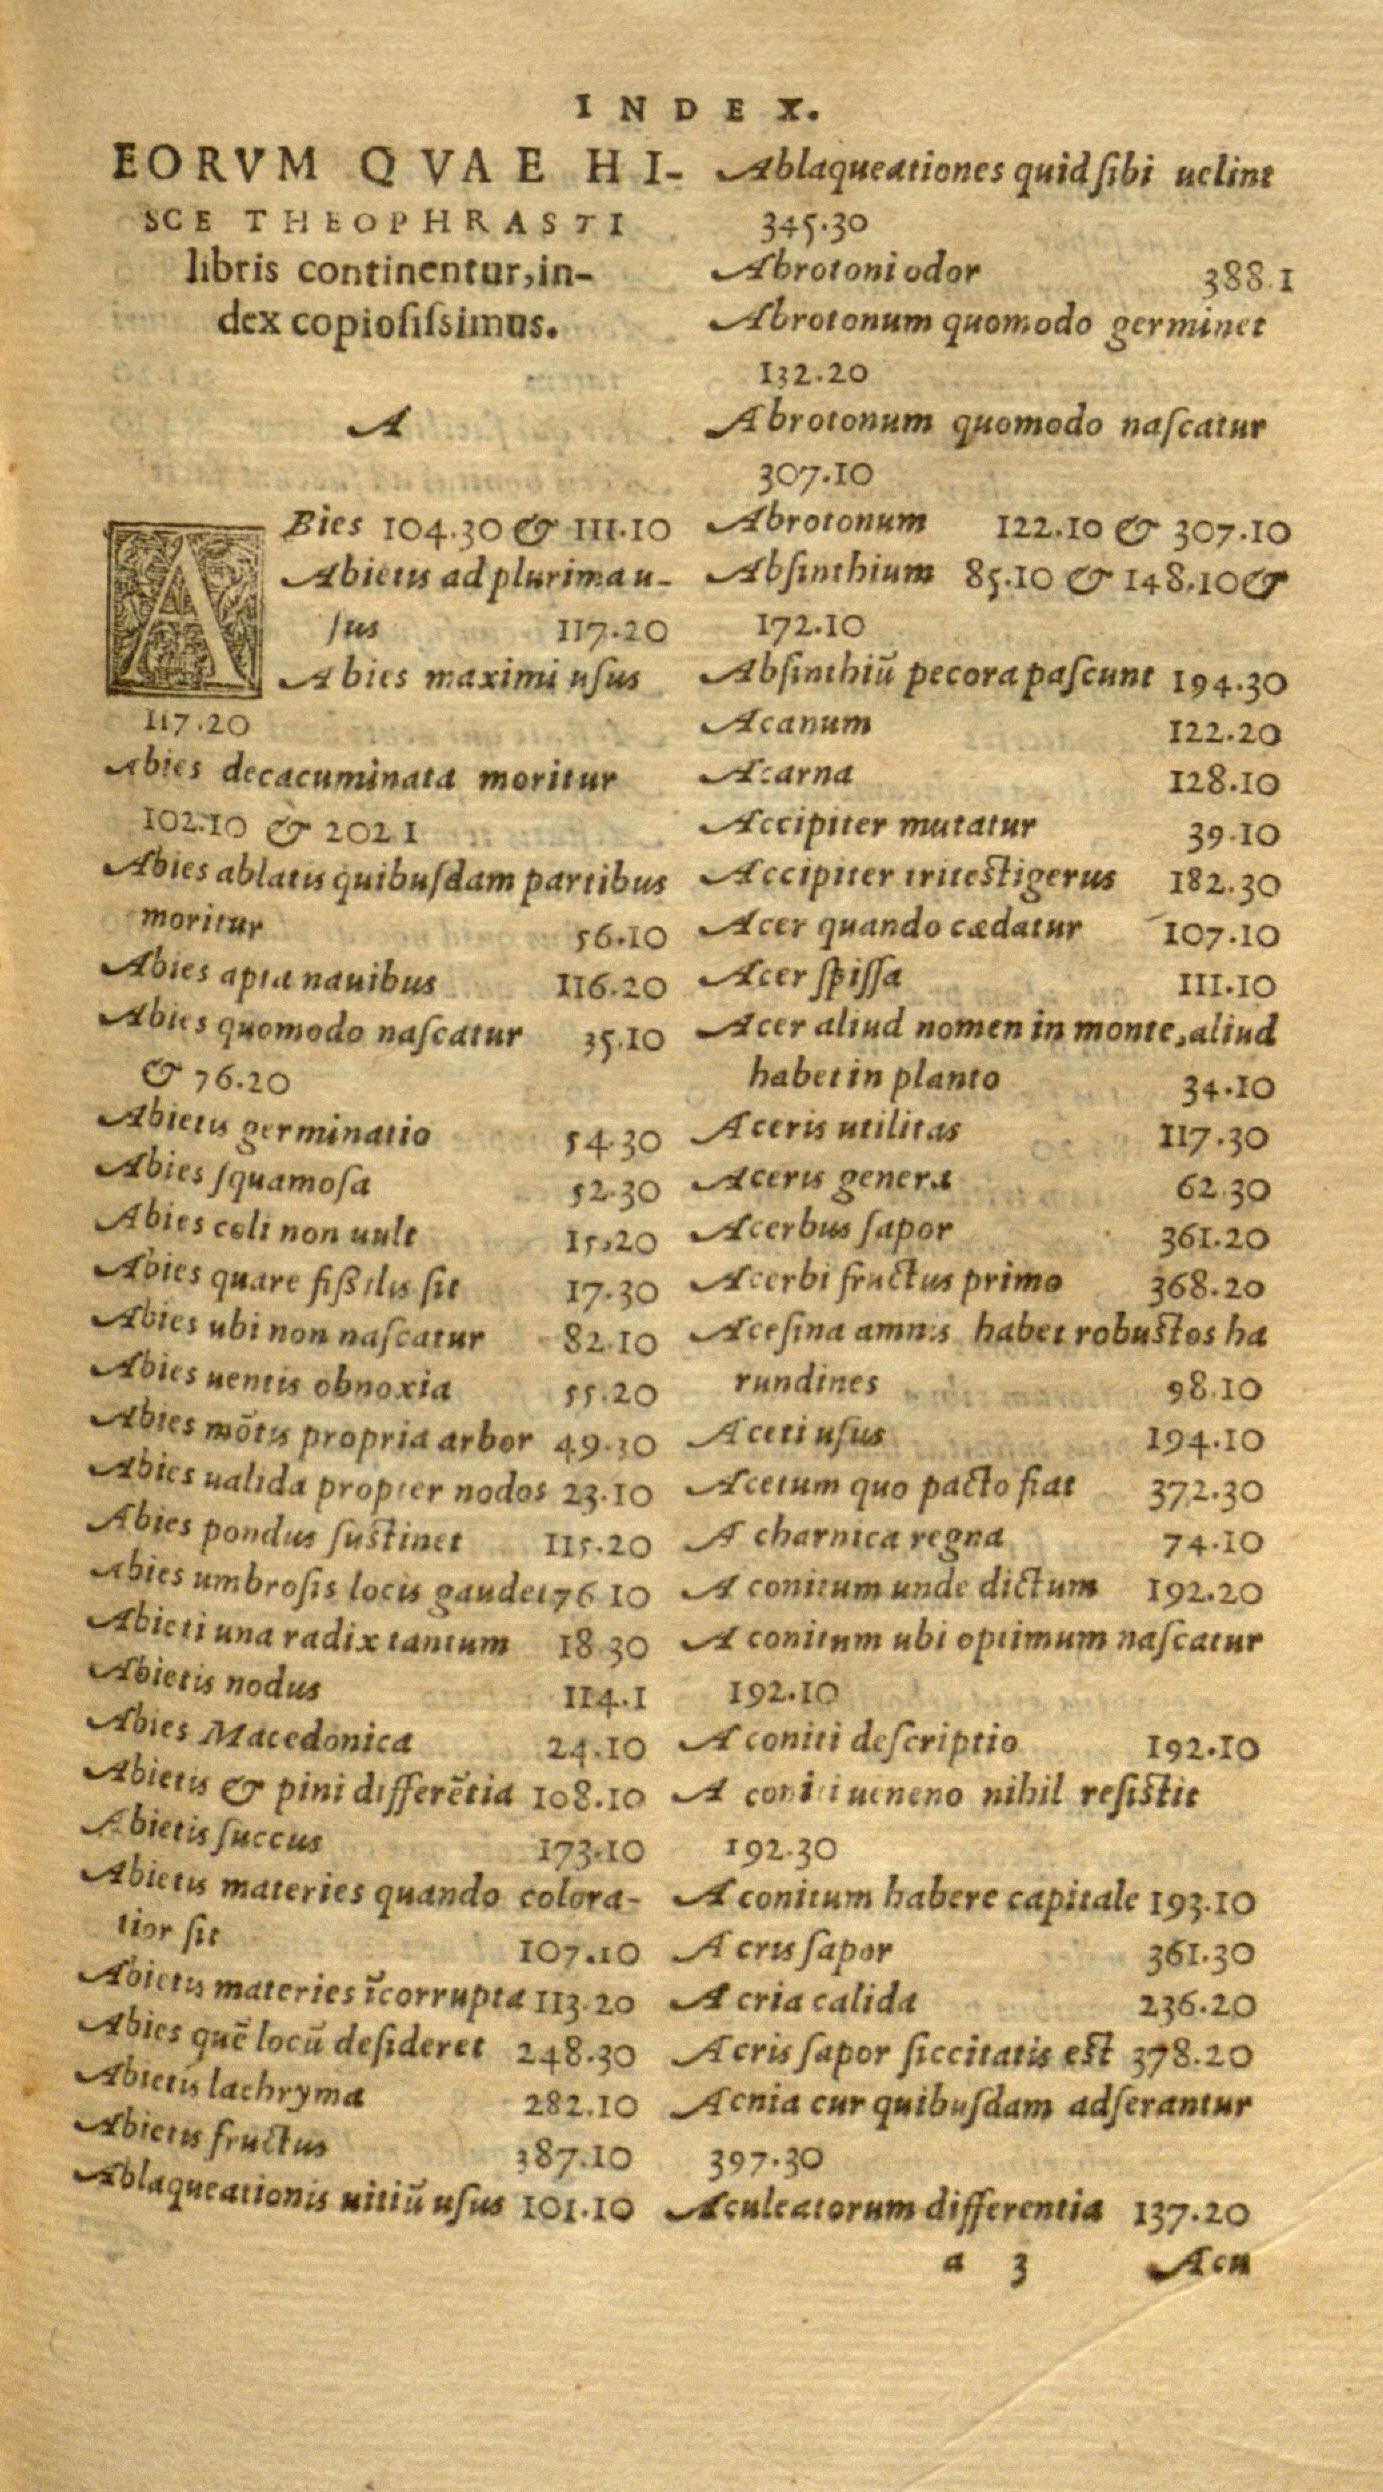 INDEX.
EORVM QVAE HI-
SCE THEOPHRASTI
libris continentur, in-
dex copiosissimus.
A
ABies 104.30 & 111.10
Abietis ad plurima u-
sus 117.20
Abies maximi usus
117.20
Abies decacuminata moritur
102.10 & 202 1
Abies ablatis quibusdam partibus
moritur 56.10
Abies apta nauibus 116.20
Abies quomodo nascatur 35.10
& 76.20
Abietis germinatio 54.30
Abies squamosa 52.30
Abies coli non uult 15.20
Abies quare fißilis sit 17.30
Abies ubi non nascatur 82.10
Abies uentis obnoxia 55.20
Abies mōtis propria arbor 49.30
Abies ualida propter nodos 23.10
Abies pondus sustinet 115.20
Abies umbrosis locis gaudet 76 10
Abieti una radix tantum 18 30
Abietis nodus 114.1
Abies Macedonica 24.10
Abietis & pini differētia 108.10
Abietis succus 173.10
Abietis materies quando colora-
tior sit 107.10
Abietis materies īcorrupta 113.20
Abies quē locū desideret 248.30
Abietis lachryma 282.10
Abietis fructus 387.10
Ablaqueationis uitiū usus 101.10
Ablaqueationes quid sibi uelint
345.30
Abrotoni odor 388.1
Abrotonum quomodo germinet
132.20
Abrotonum quomodo nascatur
307.10
Abrotonum 122.10 & 307.10
Absinthium 85.10 & 148.10 &
172.10
Absinthiū pecora pascunt 194.30
Acanum 122.20
Acarna 128.10
Accipiter mutatur 39.10
Accipiter tritestigerus 182.30
Acer quando cædatur 107.10
Acer spissa 111.10
Acer aliud nomen in monte, aliud
habet in planto 34.10
Aceris utilitas 117.30
Aceris genera 62.30
Acerbus sapor 361.20
Acerbi fructus primo 368.20
Acesina amnis habet robustos ha
rundines 98.10
Aceti usus 194.10
Acetum quo pacto fiat 372.30
Acharnica regna 74.10
Aconitum unde dictum 192.20
Aconitum ubi optimum nascatur
192.10
Aconiti descriptio 192.10
Aconiti ueneno nihil resistit
192.30
Aconitum habere capitale 193.10
Acris sapor 361.30
Acria calida 236.20
Acris sapor siccitatis est 378.20
Acnia cur quibusdam adserantur
397.30
Aculeatorum differentia 137.20
a 3 Acu